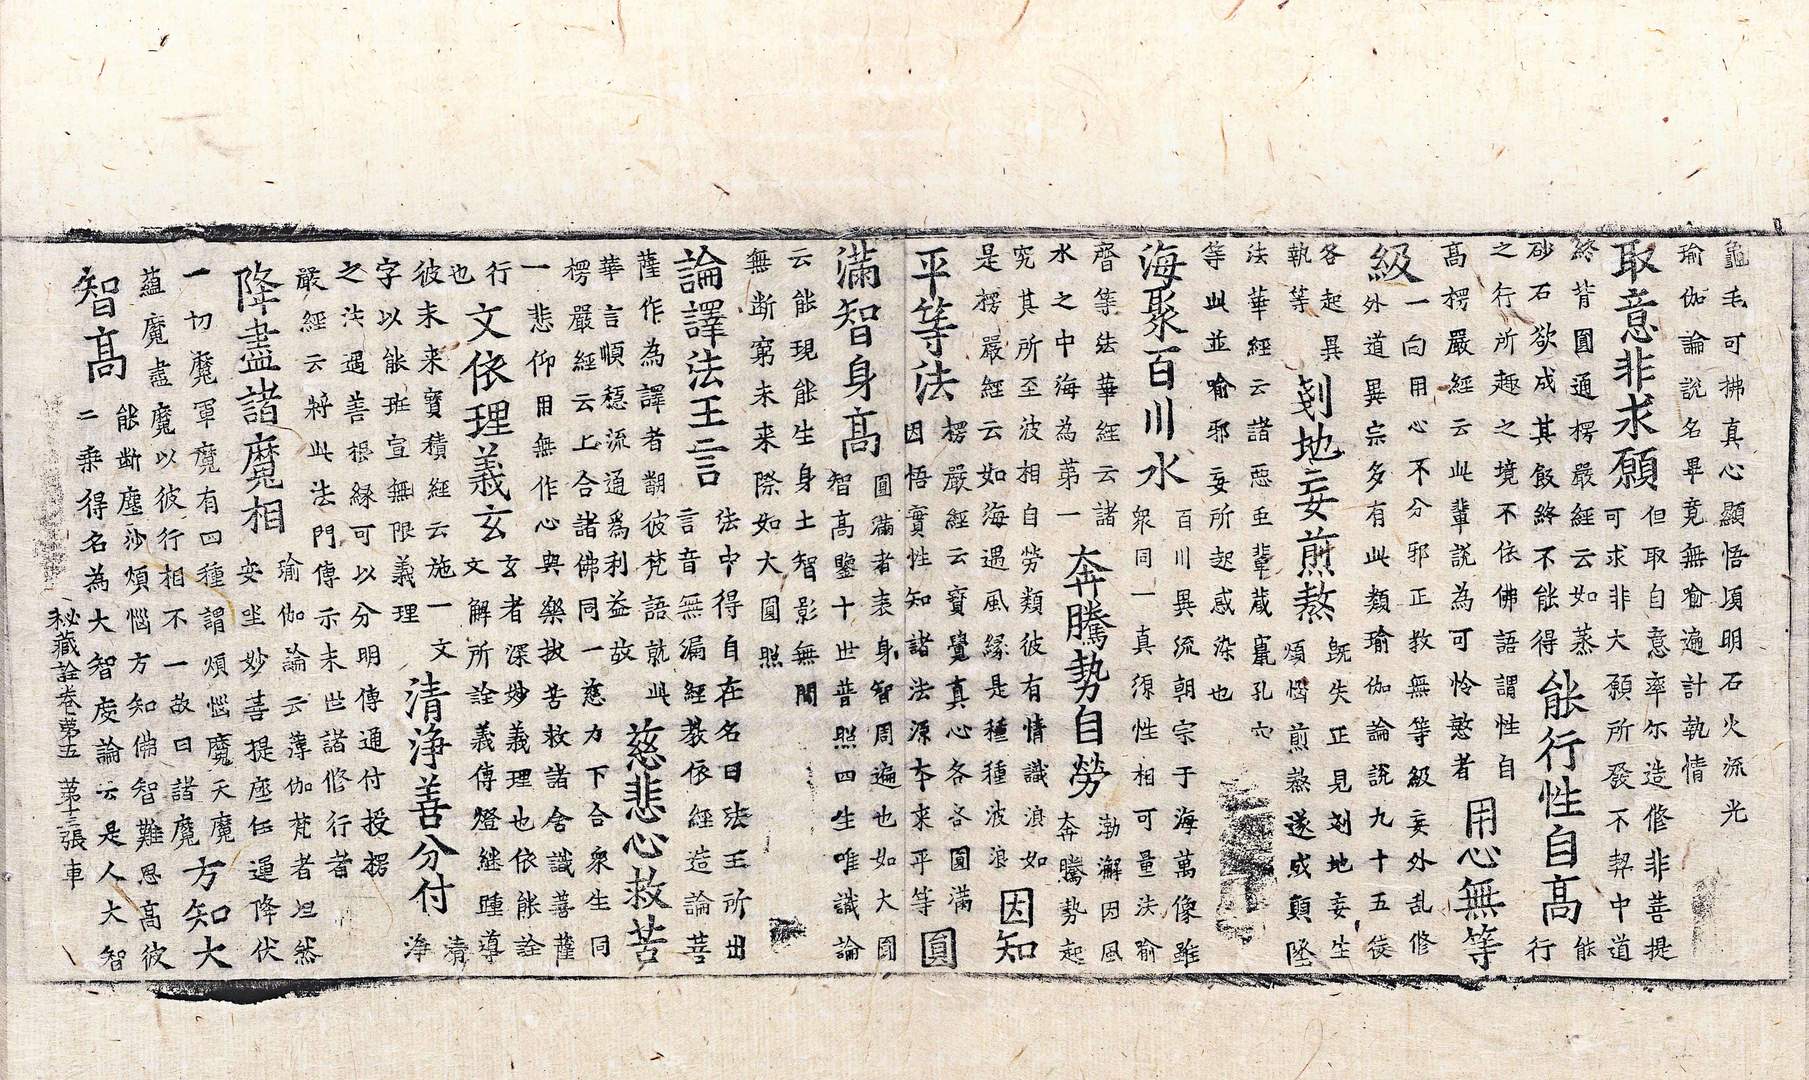 龜毛可拂真心顯悟頃明石火流光
瑜伽論說名畢竟無喻遍計執情
取意非求願
但取自意率尔造修非菩提
可求非大願所發不契中道
終背圓通楞嚴經云如蒸
砂石欲成其飯終不能得
能行性自高
能
行
之行所趣之境不依佛語謂性自
高楞嚴經云此輩說為可怜愍者
用心無等
級
一向用心不分邪正教無等級妄外乱修
外道異宗多有此類瑜伽論說九十五徒
各起異
執等
剗地妄煎熬
既失正見剗地妄生
煩惱煎熬遂成顛墜
法華經云諸惡虫輩藏竄孔穴
等此並喻邪妄所起惑染也
海聚百川水
百川異流朝宗于海萬像雖
衆同一真源性相可量法喻
齊等法華經云諸
水之中海為第一
奔騰勢自勞
渤澥因風
奔騰勢起
究其所至波相自勞類彼有情識浪如
是楞嚴經云如海遇風緣是種種波浪
因知
平等法
楞嚴經云寶覺真心各各圓滿
因悟實性知諸法源本來平等
圓
滿智身高
圓滿者表身智周遍也如大圓
智高鑒十世普照四生唯識論
云能現能生身土智影無間
無断窮未来際如大圓照
論譯法王言
法中得自在名曰法王所出
言音無漏經教依經造論菩
薩作為譯者翻彼梵語就此
華言順穩流通為利益故
慈悲心救苦
楞嚴經云上合諸佛同一慈力下合衆生同
一悲仰用無作心與樂拔苦救諸含識菩薩
行
也
文依理義玄
玄者深妙義理也依能詮
文解所詮義傳燈継踵導
彼未来寶積經云施一文
字以能班宣無限義理
清淨善分付
清
淨
之法遇善根緣可以分明傳通付授楞
嚴經云將此法門傳示末世諸修行者
降盡諸魔相
瑜伽論云薄伽梵者坦然
安坐妙菩提座任運降伏
一切魔軍魔有四種謂煩惱魔天魔
蘊魔盡魔以彼行相不一故曰諸魔
方知大
智高
能断塵沙煩惱方知佛智難思高彼
二乗得名為大智度論云是人大智
秘藏詮卷第五 第十三張 車